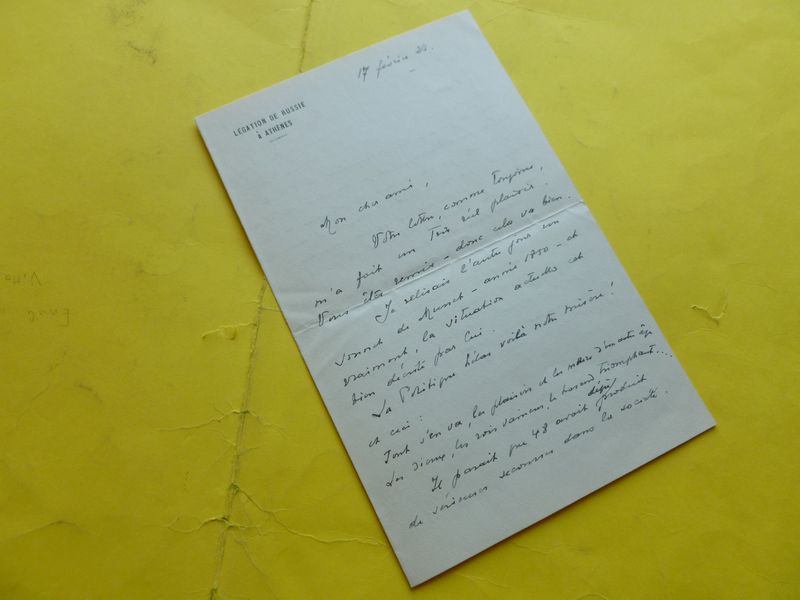 17 février
LÉGATION DE RUSSIE
À ATHÈNES
Mon cher ami,
Votre lettre, comme toujours,
m'a fait un très réel plaisir.
Vous êtes remis - donc cela va bien.
Je relisais l'autre jour un
sonnet de Musset - année 1850 - et
vraiment, la situation actuelle est
bien décrite par lui.
La Politique hélas voilà notre misère!
et ceci:
Tout s'en va, les plaisirs et les mœurs d'un autre âge
Les dieux, les rois vaincus, le hasard triomphant...
Il parait que 48 avait déjà produit
de sérieuses secousses dans la société.